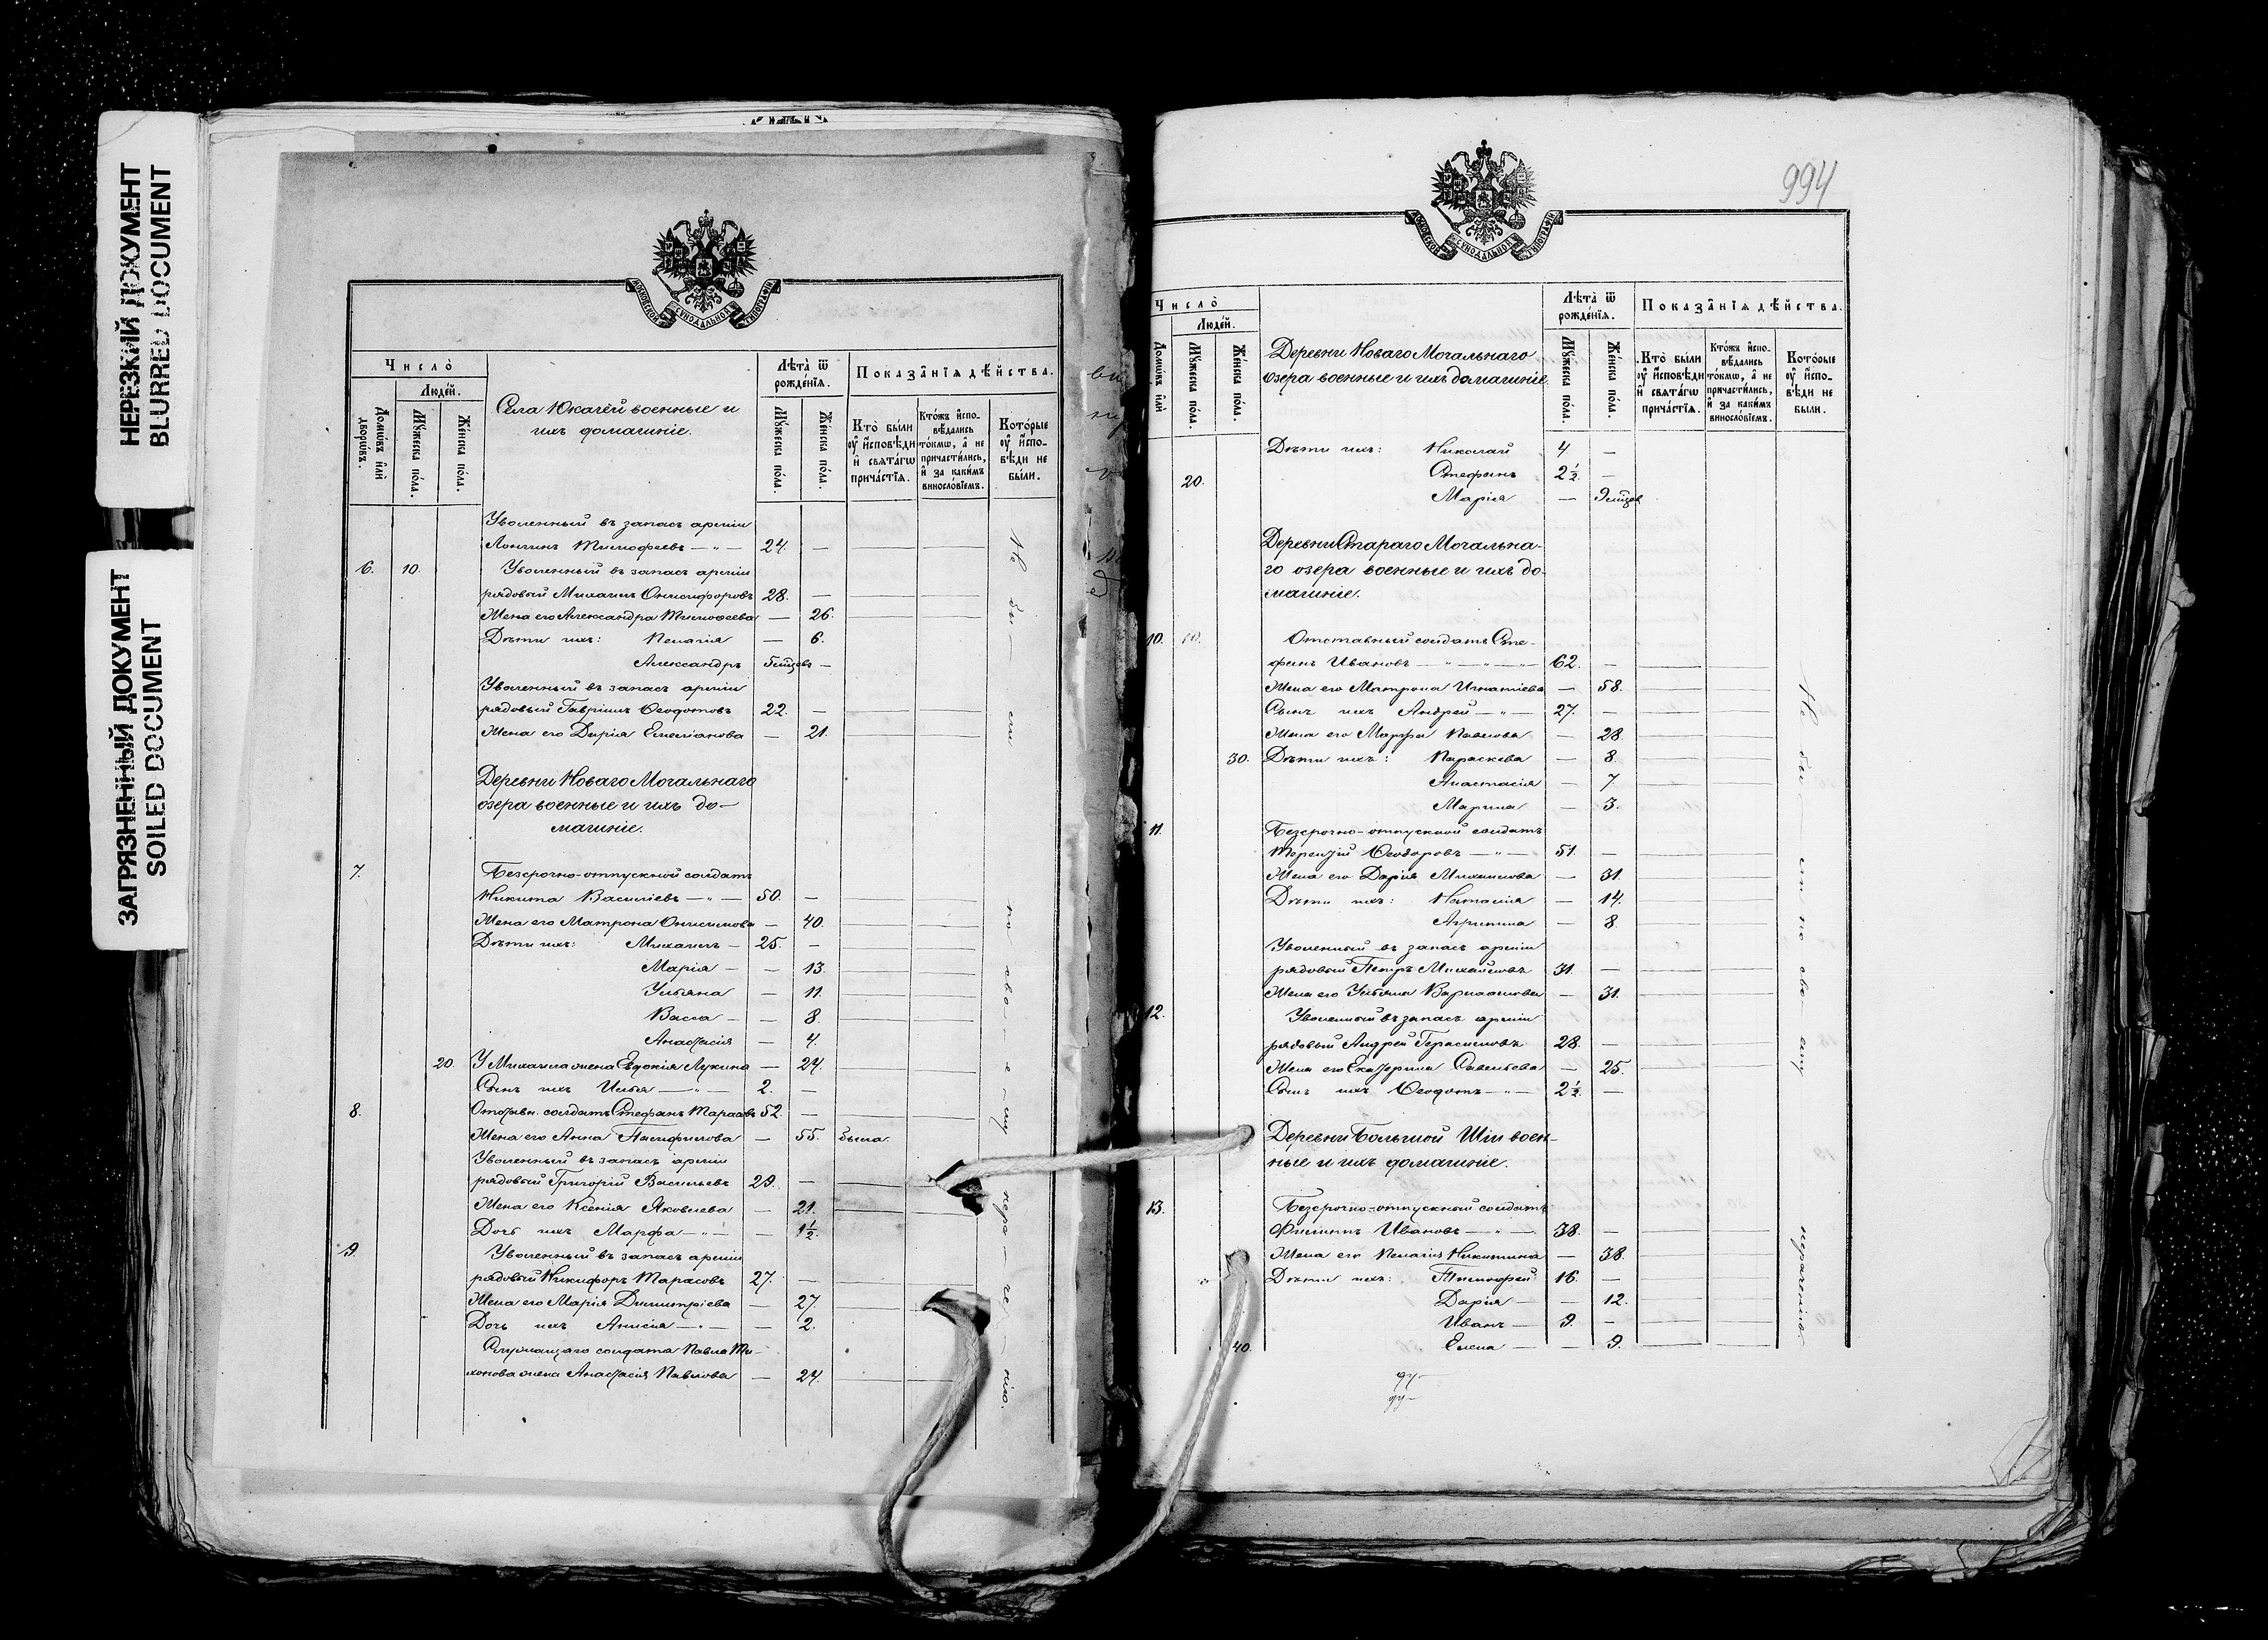 НЕРЕЗКИЙ ДОКУМЕНТ
BLURRED DOCUMENT
ЗАГРЯЗНЕННЫЙ ДОКУМЕНТ
SOILED DOCUMENT
МОСКОВСКОЙ СѴНОДАЛЬНОЙ ТИПОГРАФІИ
Число̀
Людей.
Домѡвъ и҆лѝ дворѡвъ.
Мꙋжеска по́ла.
Же́нска по́ла.
Села Юкачей военные и
ихъ домашніе.
Лѣта̀ ѿ рожде́нїѧ.
Мꙋжеска по́ла.
Же́нска по́ла.
Показа̑нїѧ дѣ́йства.
Кто̀ бы́ли ᲂу҆ и҆́сповѣди и҆ свѧта́гѡ прича́стїѧ.
Кто́жъ и҆спо-вѣ́дались то́кмѡ, а҆ не причасти́лись, и҆ за каки́мъ винослові́емъ.
Кото́рые ᲂу҆ и҆спо-вѣ́ди не бы́ли.
Уволенный въ запасъ арміи
Лонгинъ Тимофеевъ — „ — 24. —
6. 10. Уволенный въ запасъ арміи
рядовый Михаилъ Онисифоровъ 28. —
Жена его Александра Тимофеева — 26.
Дѣти ихъ: Пелагія — 6.
Александръ 5 мѣсцевъ —
Уволенный въ запасъ арміи
рядовый Гавріилъ Ѳеодотовъ 22. —
Жена его Дарія Емеліанова — 21.
Деревни Новаго Мочальнаго
озера военные и ихъ до-
машніе.
7. Безсрочно-отпускной солдатъ
Никита Василіевъ — „ — 50. —
Жена его Матрона Онисимова — 40.
Дѣти ихъ: Михаилъ — 25. —
Марія — — 13.
Ульяна — 11.
Васса — — 8.
Анастасія — 4.
20. У Михаила жена Евдокія Лукина — 24.
Сынъ ихъ Илья — „ — 2. —
8. Отставн. солдатъ Стефанъ Тарасовъ 52. —
Жена его Анна Памфилова — 55. была.
Уволенный въ запасъ арміи
рядовый Григорій Васильевъ 29. —
Жена его Ксенія Яковлева — 21.
Дочь ихъ Марфа — „ — — 1½.
9. Уволенный въ запасъ арміи
рядовый Никифоръ Тарасовъ 27. —
Жена его Марія Димитріева — 27.
Дочь ихъ Анисія — „ — — 2.
Служащаго солдата Павла Ти-
хонова жена Анастасія Павлова — 24.
Не бы — ли по сво — е — му нера че — нію.
994
МОСКОВСКОЙ СѴНОДАЛЬНОЙ ТИПОГРАФІИ
Число̀
Людей.
Домѡвъ и҆лѝ
Мꙋжеска по́ла.
Же́нска по́ла.
Деревни Новаго Мочальнаго
озера военные и ихъ домашніе.
Лѣта̀ ѿ рожде́нїѧ.
Мꙋжеска по́ла.
Же́нска по́ла.
Показа̑нїѧ дѣ́йства.
Кто̀ бы́ли ᲂу҆ и҆́сповѣди и҆ свѧта́гѡ прича́стїѧ.
Кто́жъ и҆спо-вѣ́дались то́кмѡ, а҆ не причасти́лись, и҆ за каки́мъ винослові́емъ.
Кото́рые ᲂу҆ и҆спо-вѣ́ди не бы́ли.
Дѣти ихъ: Николай 4 —
20. Стефанъ 2½ —
Марія — 9 мѣсцев
Деревни Стараго Мочальна-
го озера военные и ихъ до-
машніе.
10. 10. Отставный солдатъ Сте-
фанъ Ивановъ — „ — „ — 62. —
Жена его Матрона Игнатіева — 58.
Сынъ ихъ Андрей — „ — 27. —
Жена его Марфа Павлова — 28.
30. Дѣти ихъ: Параскева — 8.
Анастасія — 7
Марина — 3.
11. Безсрочно-отпускной солдатъ
Терентій Ѳеодоровъ — „ — 51. —
Жена его Дарія Михайлова — 31.
Дѣти ихъ: Наталія — 14.
Агрипина — 8.
Уволенный въ запасъ арміи
рядовый Петръ Михайловъ 31. —
Жена его Ульяна Варлаамова — 31.
12. Уволенный въ запасъ арміи
рядовый Андрей Герасимовъ 28. —
Жена его Екатерина Савельева — 25.
Сынъ ихъ Ѳеодотъ — „ — 2½. —
Деревни Большой Ши воен-
ные и ихъ домашніе.
13. Безсрочно-отпускный солдатъ
Филиппъ Ивановъ — „ — 38. —
Жена его Пелагія Никитина — 38.
Дѣти ихъ: Тимофей 16. —
Дарія — — 12.
Иванъ — 9. —
40. Елена — — 9.
Не бы — ли по сво ему нераченію.